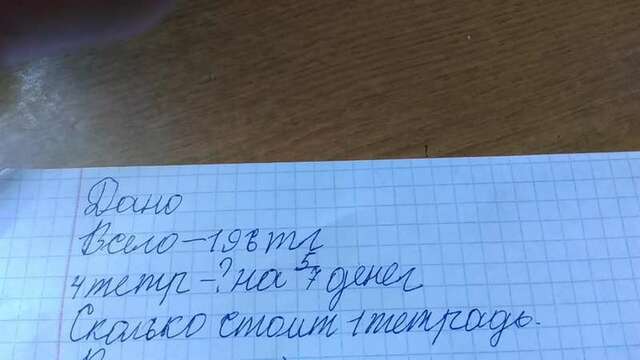 Дано
Всего – 196 тг
4 тетр – ? на 5/7 денег
Сколько стоит 1 тетрадь.